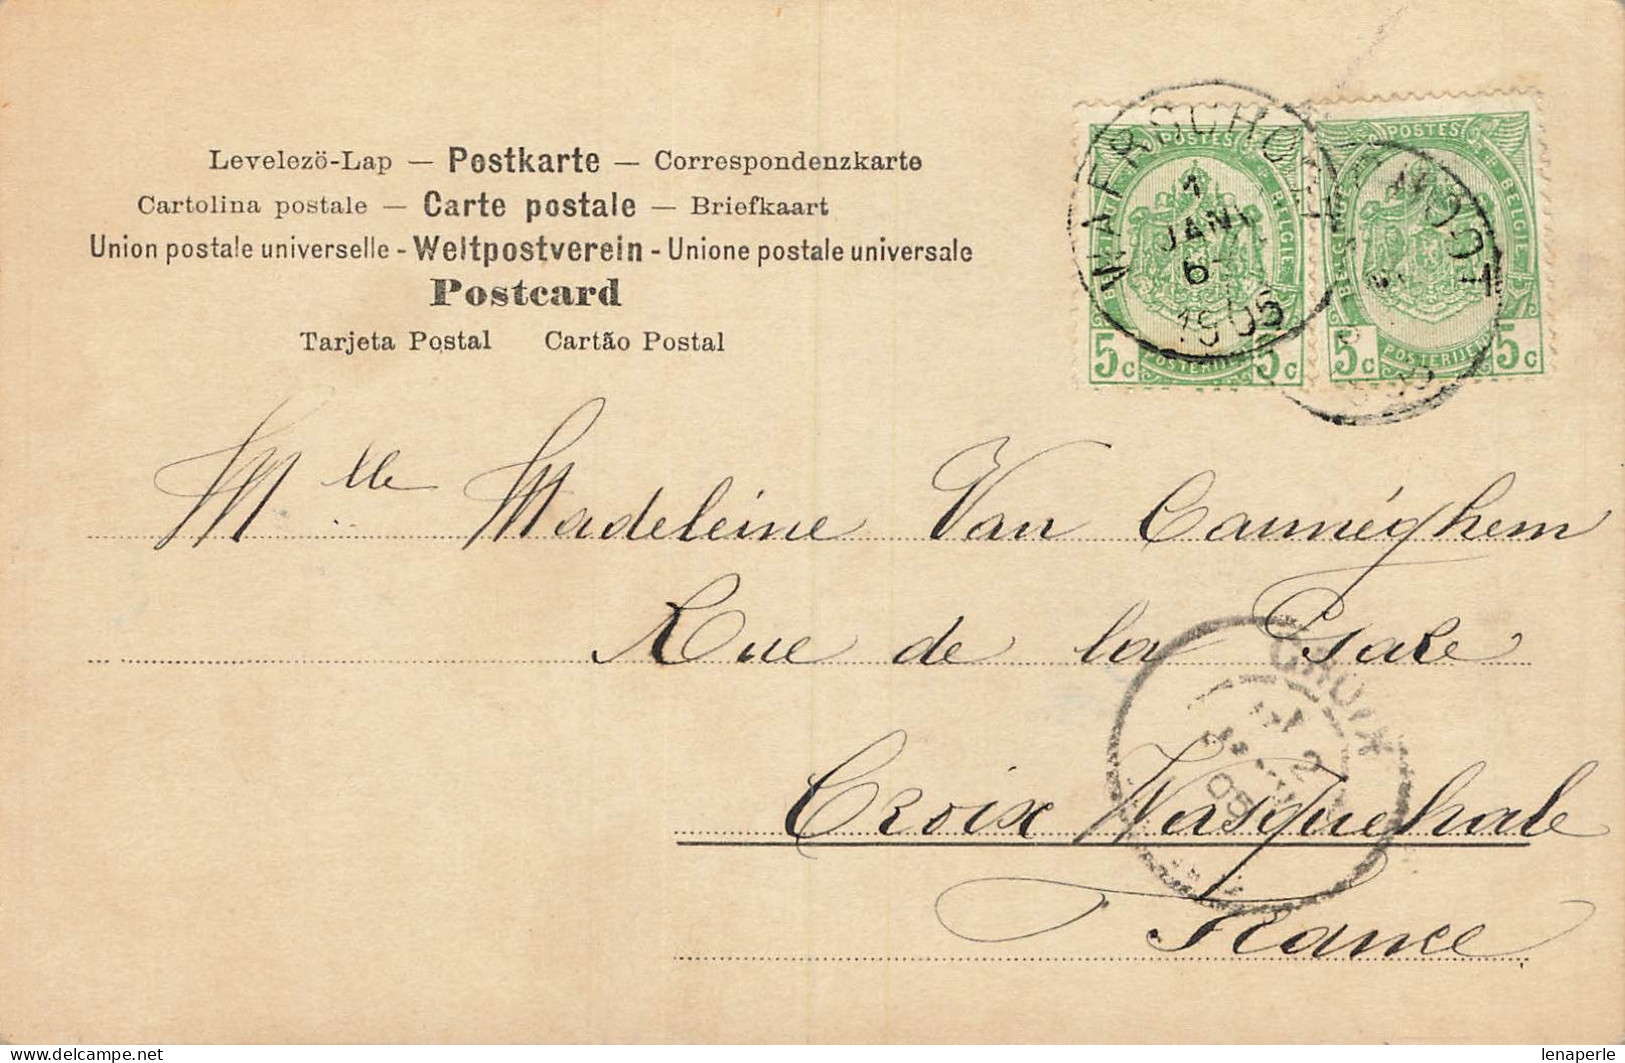 Levelezö-Lap — Postkarte — Correspondenzkarte
Cartolina postale — Carte postale — Briefkaart
Union postale universelle - Weltpostverein - Unione postale universale
Postcard
Tarjeta Postal Cartão Postal
WAERSCHOOT
1
JANV
6-
1905
POSTES
BELGIE
5c POSTERIJEN 5c
POSTES
BELGIE
5c POSTERIJEN 5c
Mlle Madeleine Van Cannéghem
Rue de la Gare
CROIX
2
05
Croix Wasquehale
France
delcampe.net
lenaperle